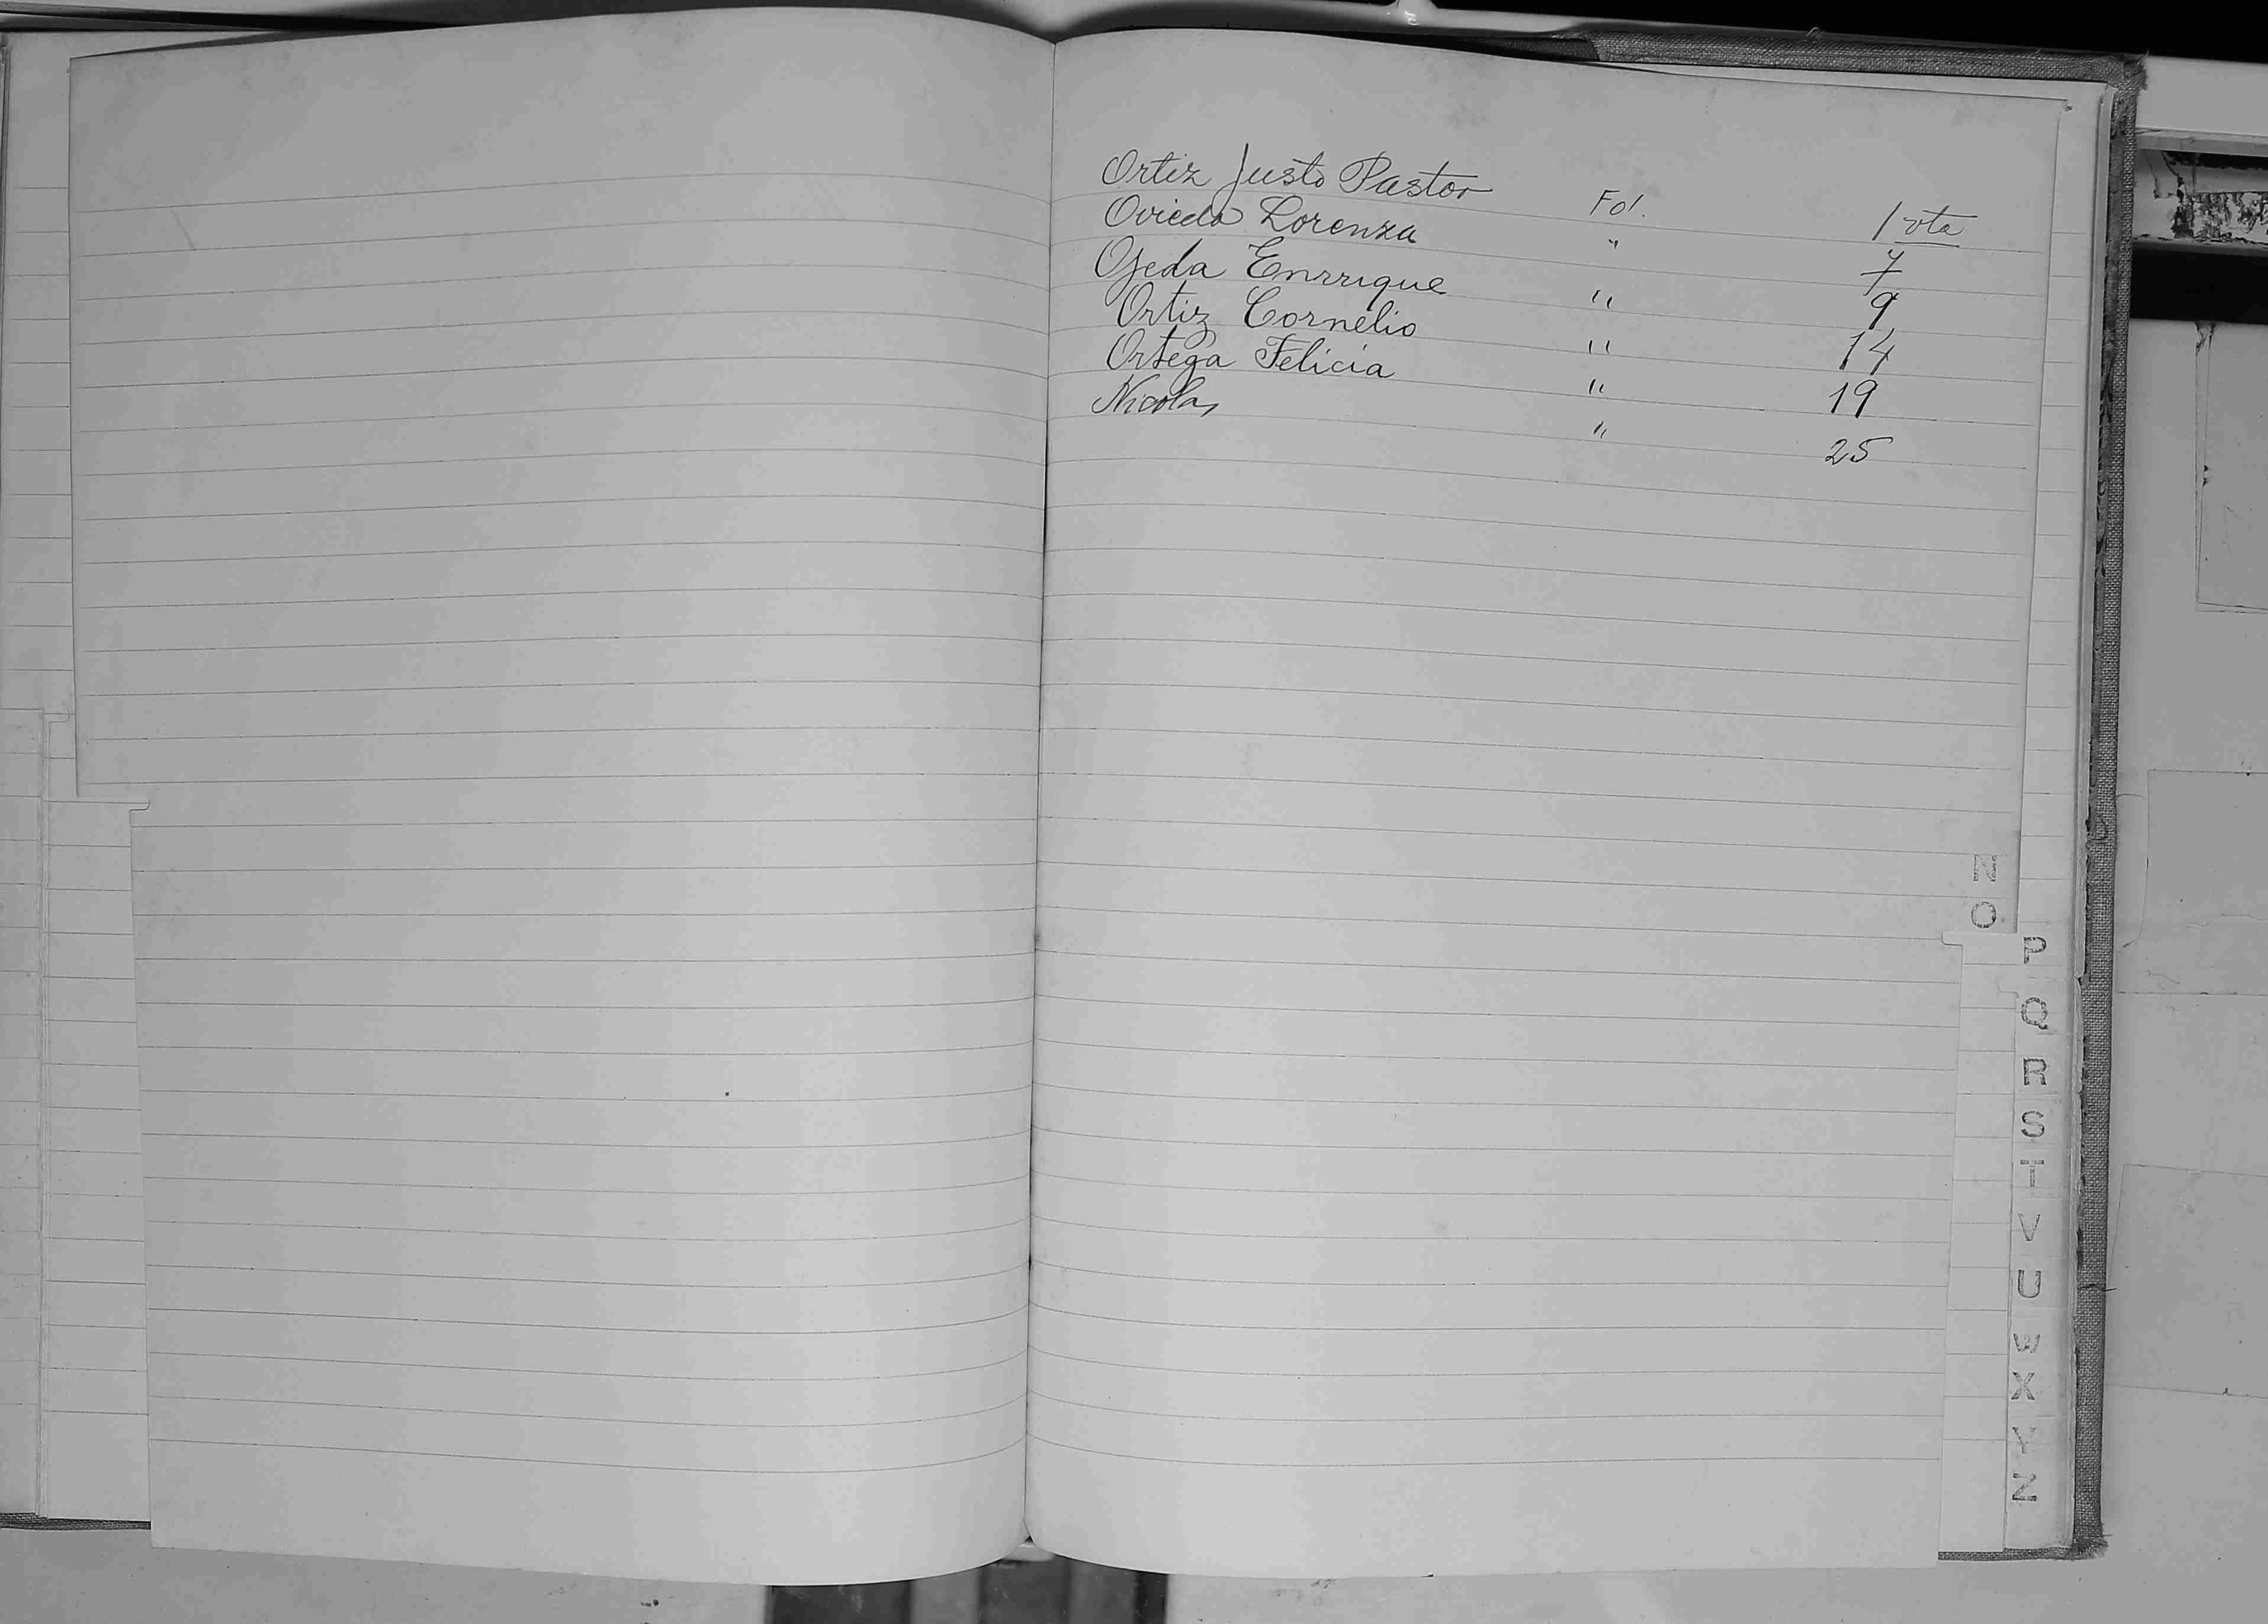 Ortiz Justo Pastor Fol. 1 vta
Oviedo Lorenza " 7
Ojeda Enrrique " 9
Ortiz Cornelio " 14
Ortega Felicia " 19
Nicolas " 25
N
O
P
Q
R
S
T
V
U
W
X
Y
Z